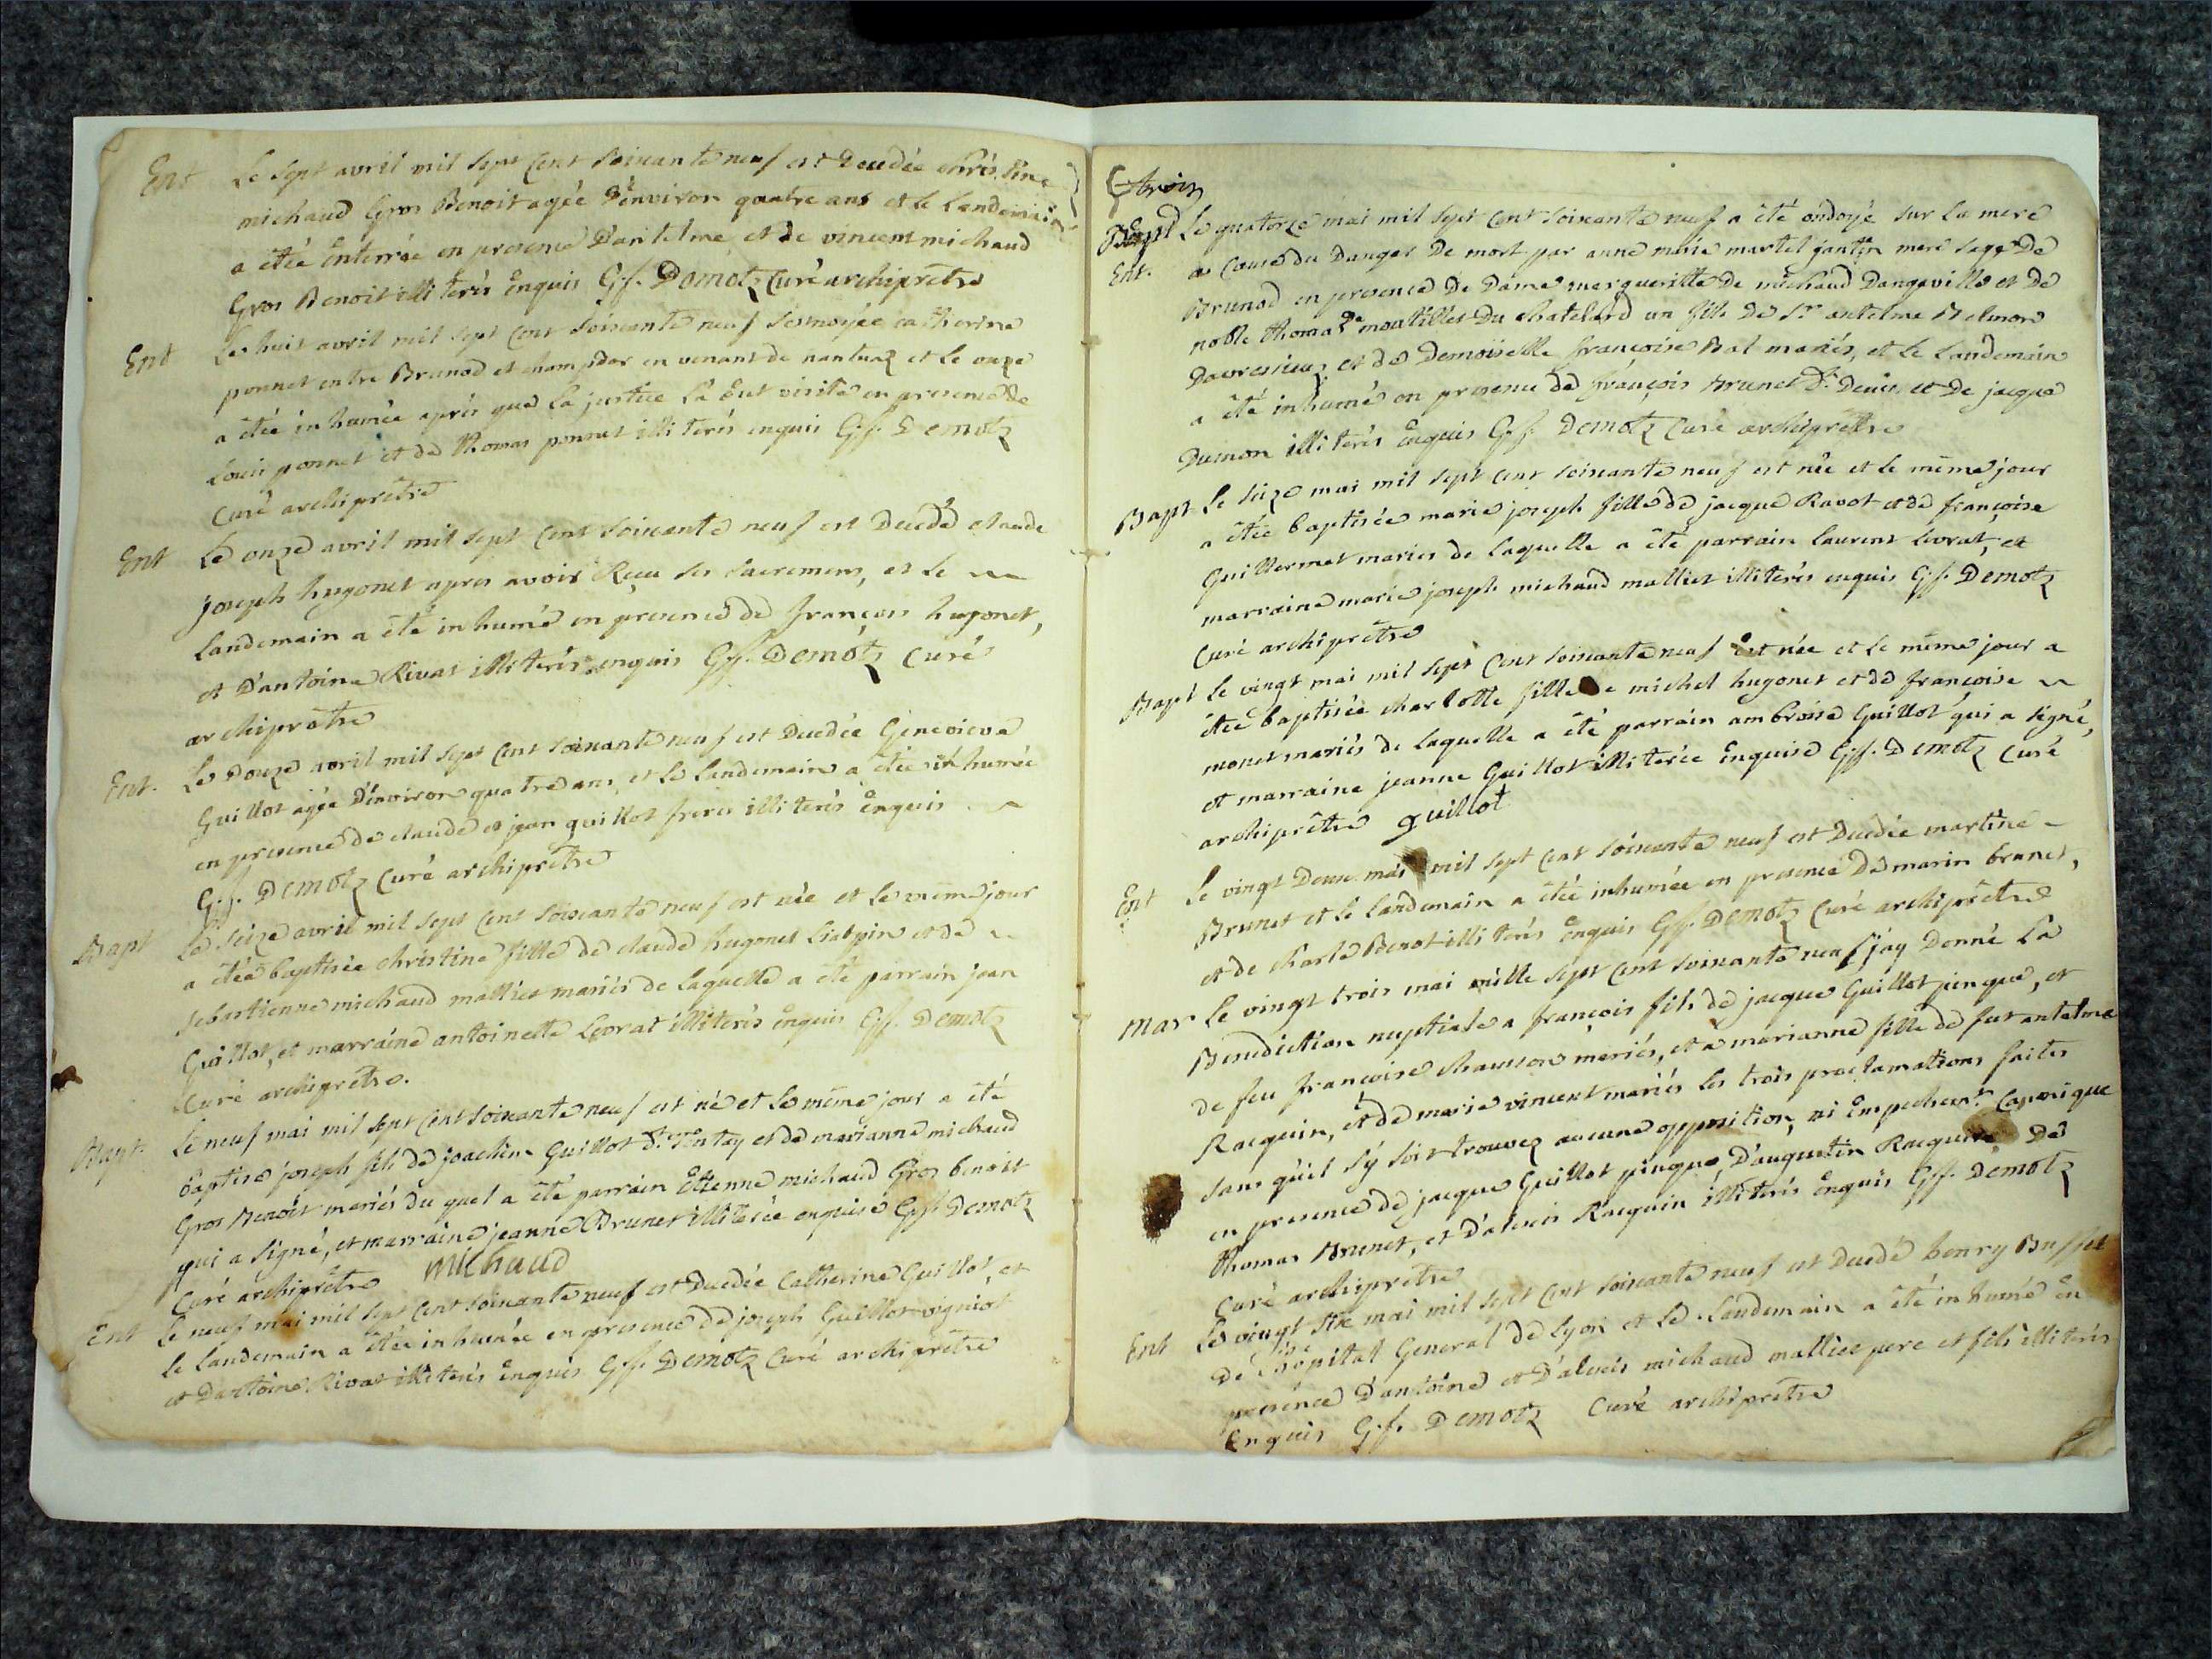 Ent Le sept avril mil sept cent soixante neuf est Decedée christine
michaud Gros Benoit agée d'environ quatre ans et le landemain
a étée enterrée en presence d'antelme et de vincent michaud
Gros Benoit illiterés enquis G.f. Demotz curé archiprêtre
Ent Le huit avril mil sept cent soixante neuf s'est noyée catherine
ponnet entre Brenod et champdor en venant de nantuaz et le onze
a étée inhumée aprés que la justice l'a eut visite en presence de
Louis ponnet et de Thomas ponnet illiterés enquis G.f. Demotz
Curé archiprêtre
Ent Le onze avril mil sept cent soixante neuf est Decedé claude
joseph hugonet apres avoir Reçu ses sacremens, et le
landemain a été inhumé en presence de françois hugonet,
et d'antoine Rivat illiterés enquis G.f. Demotz Curé
archiprêtre
Ent. Le Douze avril mil sept cent soixante neuf est Decedée Genevieve
Guillot agée d'environ quatre ans, et le landemain a étée inhumée
en presence de claude et jean guillot freres illiterés enquis
G.f. Demotz Curé archiprêtre
Bapt Le seize avril mil sept cent soixante neuf est née et le même jour
a étée baptisée christine fille de claude hugonet Lialpin et de
sebastienne michaud malliet mariés de laquelle a été parrain jean
Guillot, et marraine antoinette Levrat illiterés enquis G.f. Demotz
Curé archiprêtre.
Bapt. Le neuf mai mil sept cent soixante neuf est né et le même jour a été
baptisé joseph fils de joachim Guillot dt. Tentay et de marianne michaud
Gros Benoit mariés du quel a été parrain Etienne michaud Gros benoit
qui a signé, et marraine jeanne Brunet illiterée enquise G.f. Demotz
Curé archiprêtre michaud
Ent Le neuf mai mil sept cent soixante neuf est Decedée Catherine Guillot, et
le landemain a étée inhumée en presence de joseph Guillot vigniot
et D'antoine Rivat illiterés enquis G.f. Demotz Curé archiprêtre
trois
Bapt Le quatorze mai mil sept cent soixante neuf a été ondoyé sur la mere
Ent. a Cause du Danger De mort par anne marie martel jantin mere sage De
Brenod en presence De Dame margueritte De michaud Dangeville et De
noble thomas De moutillet Du chatelard un fils De Sr. antelme Belmon
Davressieux et de Demoiselle françoise Bal mariés, et le Landemain
a été inhumé en presence de françois Brunet dt. Denis, et De jacque
Dumon illiterés Enquis G.f. Demotz Curé archiprêtre
Bapt Le seize mai mil sept cent soixante neuf est née et le même jour
a étée baptisée marie joseph fille de jacque Ravot et de françoise
Guillermet mariés de laquelle a été parrain laurent Levrat, et
marraine marie joseph michaud malliet illiterés enquis G.f. Demotz
Curé archiprêtre
Bapt Le vingt mai mil sept cent soixante neuf est née et le même jour a
étée baptisée charlotte fille de michel hugonet et de françoise
monet mariés de laquelle a été parrain ambroise Guillot qui a signé,
et marraine jeanne Guillot illiterée enquise G.f. Demotz Curé
archiprêtre guillot
Ent Le vingt Deux mai mil sept cent soixante neuf est Decedée martine
Brunet et le landemain a étée inhumée en presence De marin brunet,
et de charle Benot illiterés enquis G.f. Demotz Curé archiprêtre
mar Le vingt trois mai mille sept cent soixante neuf j'ay Donné La
Benediction nuptiale a françois fils de jacque Guillot pinque, et
de feu françoise chausson mariés, et a marianne fille de feu antelme
Racquin, et de marie vincent mariés les trois proclamations faites
sans qu'il s'y soit trouvez aucune opposition, ni Empechemt. Canonique
en presence de jacque Guillot pinque, D'augustin Racquin De
thomas Brunet, et D'alexis Racquin illiterés enquis G.f. Demotz
Curé archiprêtre
Ent Le vingt six mai mil sept cent soixante neuf est Decedé henry
De l'hopital General de lyon et le landemain a été inhumé en
presence D'antoine et D'alexis michaud malliet pere et fils illiterés
Enquis G.f. Demotz Curé archiprêtre